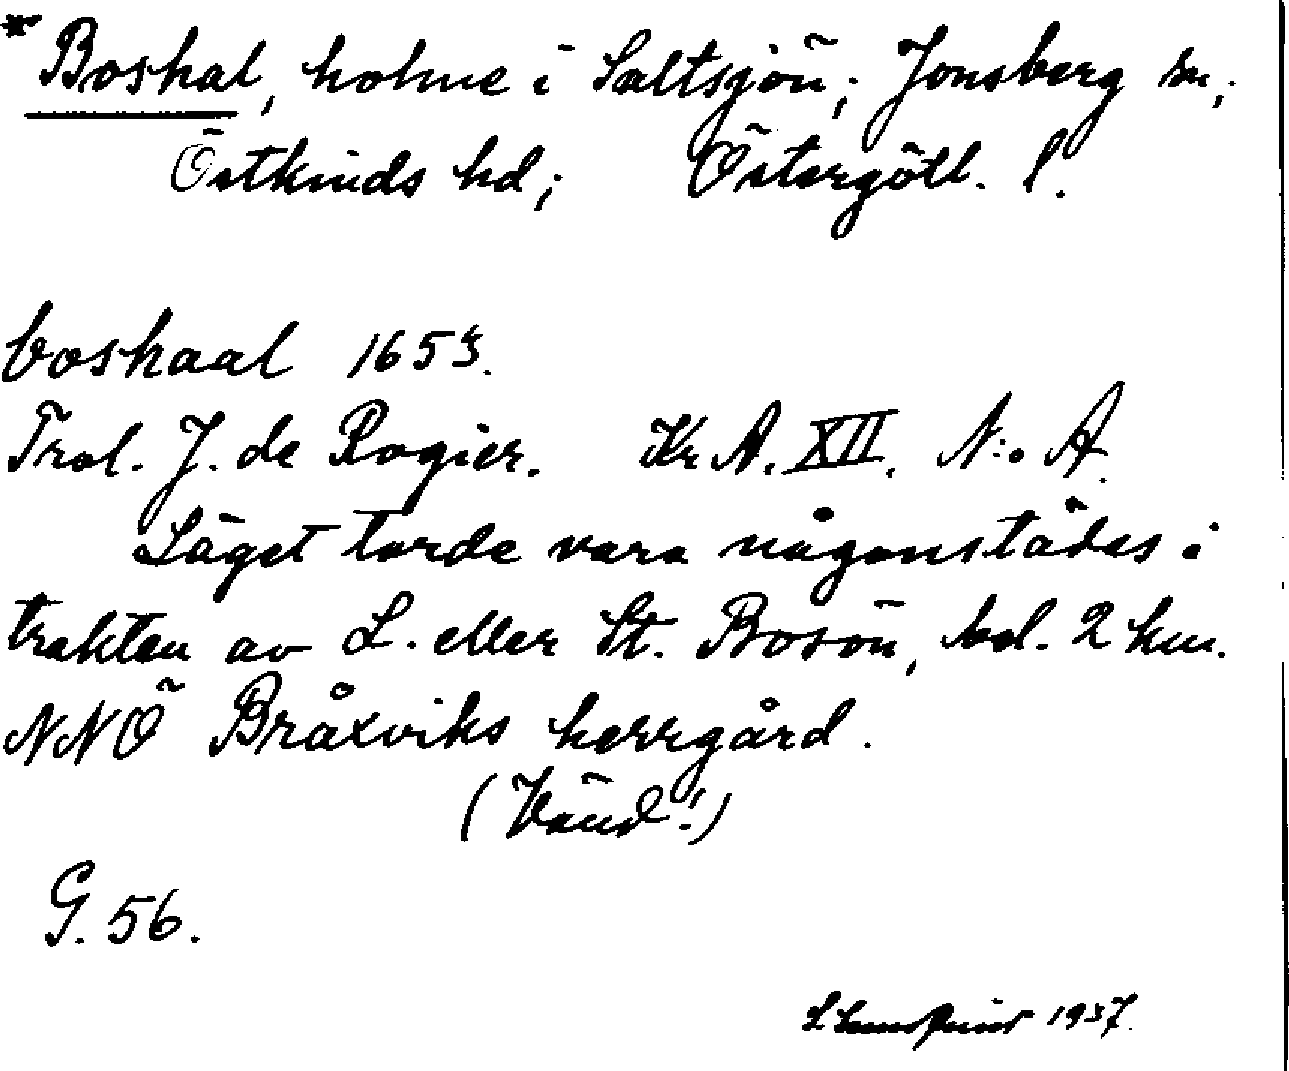 * Boskal, holme i Saltsjön; Jonsberg sn;
Östkinds hd; Östergötl. l.
boskaal 1653.
Trol. J. de Rogier. Kr A. XII. N:o A.
Läget torde vara någonstädes i
trakten av L. eller St. Bosön, bel. 2 km.
NNÖ Bråxviks herrgård.
(Vänd!)
G. 56.
1937.